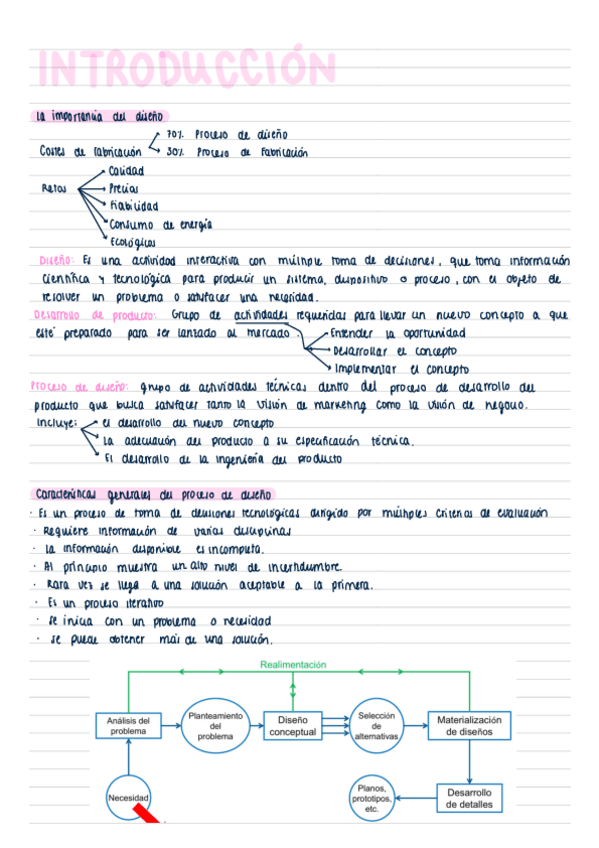 INTRODUCCIÓN
La importancia del diseño
70% Proceso de diseño
Costes de fabricación
30% Proceso de Fabricación
Calidad
Retos
Precios
Fiabilidad
Consumo de energía
Ecológicos
Diseño: Es una actividad interactiva con múltiple toma de decisiones, que toma información
científica y tecnológica para producir un sistema, dispositivo o proceso, con el objeto de
resolver un problema o satisfacer una necesidad.
Desarrollo de producto: Grupo de actividades requeridas para llevar un nuevo concepto a que
esté preparado para ser lanzado al mercado.
Entender la oportunidad
Desarrollar el concepto
Implementar el concepto
Proceso de diseño: grupo de actividades técnicas dentro del proceso de desarrollo del
producto que busca satisfacer tanto la visión de marketing como la visión de negocio.
Incluye:
el desarrollo del nuevo concepto
La adecuación del producto a su especificación técnica.
El desarrollo de la ingeniería del producto
Características generales del proceso de diseño
· Es un proceso de toma de decisiones tecnológicas dirigido por múltiples criterios de evaluación
· Requiere información de varias disciplinas
· La información disponible es incompleta.
· Al principio muestra un alto nivel de incertidumbre.
· Rara vez se llega a una solución aceptable a la primera.
· Es un proceso iterativo
· Se inicia con un problema o necesidad
· Se puede obtener más de una solución.
Realimentación
Análisis del
problema
Planteamiento
del
problema
Diseño
conceptual
Selección
de
alternativas
Materialización
de diseños
Necesidad
Planos,
prototipos,
etc.
Desarrollo
de detalles